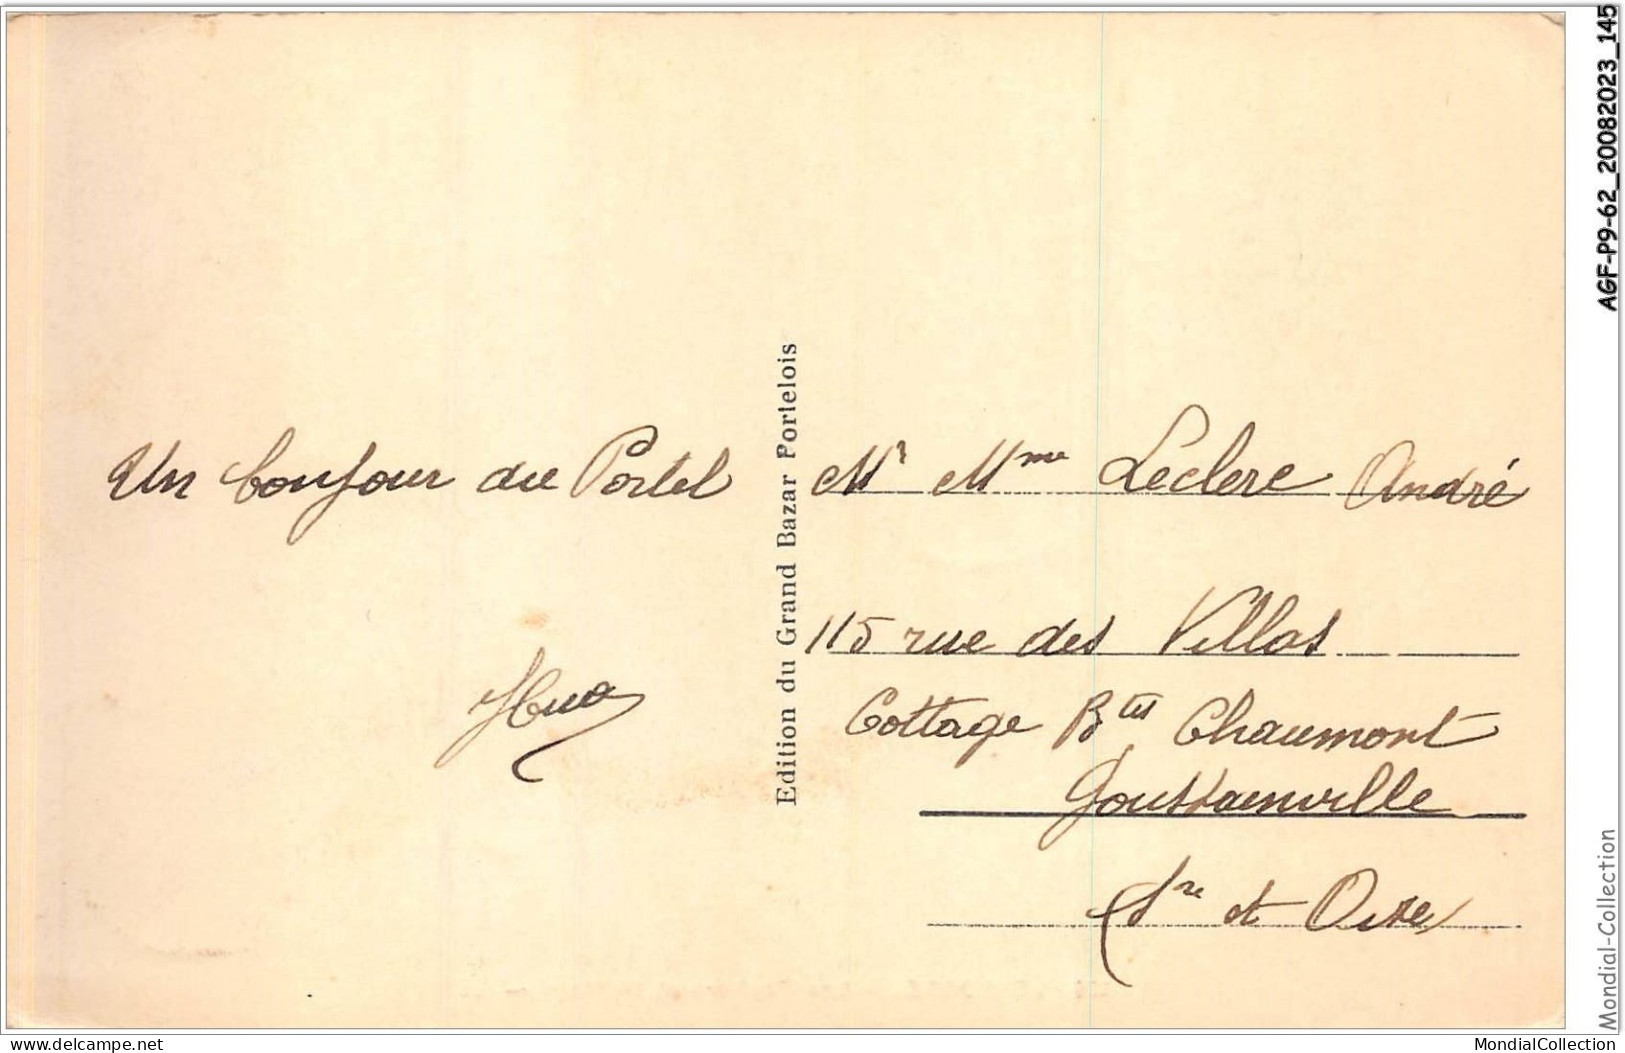 Un bonjour du Portel
Hua
Edition du Grand Bazar Portelois
Mr Mme Leclere André
115 rue des Villas
Cottage Btes Chaumont
Goussainville
Sne et Oise
AGF-P9-62_20082023_145
Mondial-Collection
delcampe.net
MondialCollection